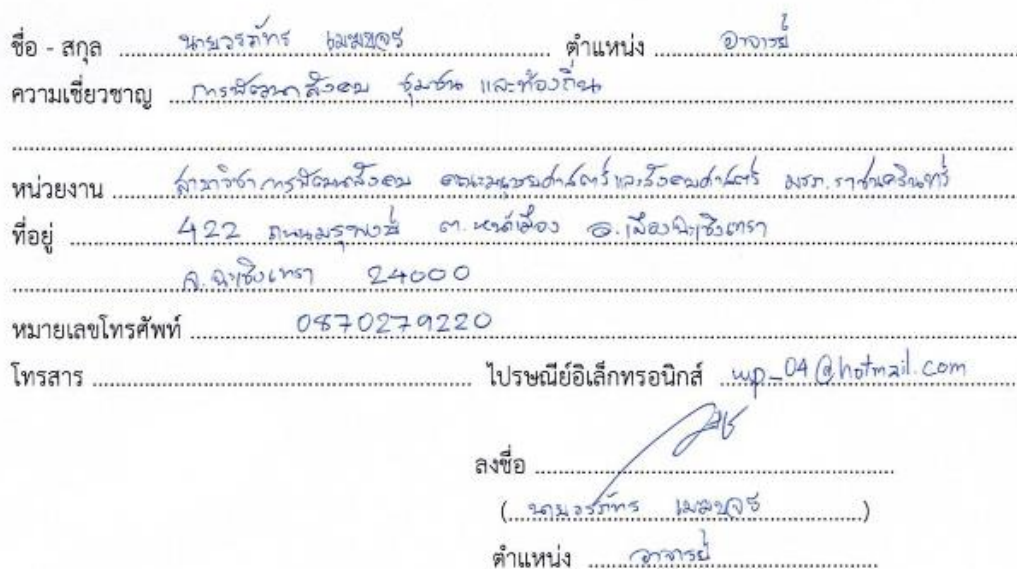 ชื่อ - สกุล นายวรภัทร ตำแหน่ง อาจารย์
ความเชี่ยวชาญ การพัฒนาสังคม ชุมชน และท้องถิ่น
หน่วยงาน สาขาวิชาการพัฒนาสังคม คณะมนุษยศาสตร์และสังคมศาสตร์ มรภ.ราชนครินทร์
ที่อยู่ 422 ถนนมรุพงษ์ ต.หน้าเมือง อ.เมืองฉะเชิงเทรา
จ.ฉะเชิงเทรา 24000
หมายเลขโทรศัพท์ 0870279220
โทรสาร ไปรษณีย์อิเล็กทรอนิกส์ wp_04@hotmail.com
ลงชื่อ
(นายวรภัทร )
ตำแหน่ง อาจารย์